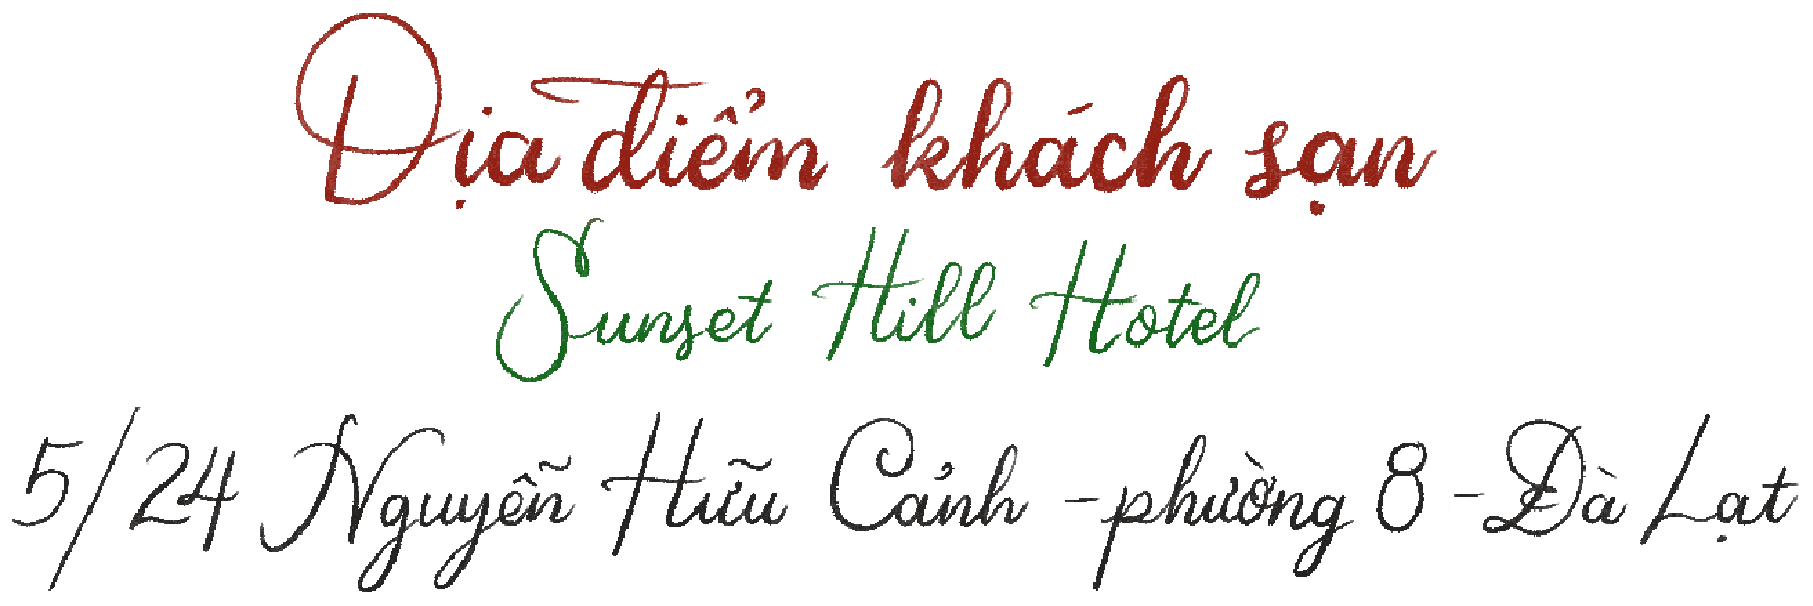 Địa điểm khách sạn
Sunset Hill Hotel
5/24 Nguyễn Hữu Cảnh - phường 8 - Đà Lạt